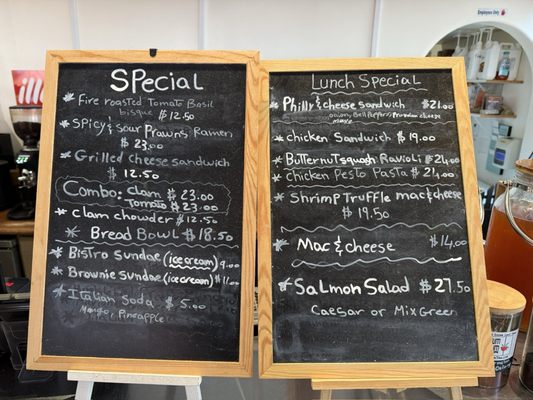 Employees Only
SPecial
Fire roasted Tomato Basil
bisque $12.50
Spicy & sour Prawns Ramen
$23.00
Grilled cheese sandwich
$12.50
Combo: Clam $23.00
Tomato $23.00
clam chowder $12.50
Bread Bowl $18.50
Bistro Sundae (ice cream) 9.00
Brownie Sundae (ice cream) $11.00
Italian Soda $5.00
Mango, Pineapple
Lunch Special
Philly & cheese sandwich $21.00
onion, Bell Peppers
chicken Sandwich $19.00
Butternut squash Ravioli $24.00
Chicken Pesto Pasta $24.00
Shrimp Truffle mac & cheese
$19.50
Mac & cheese $14.00
SaLmon Salad $27.50
Caesar or Mix Green